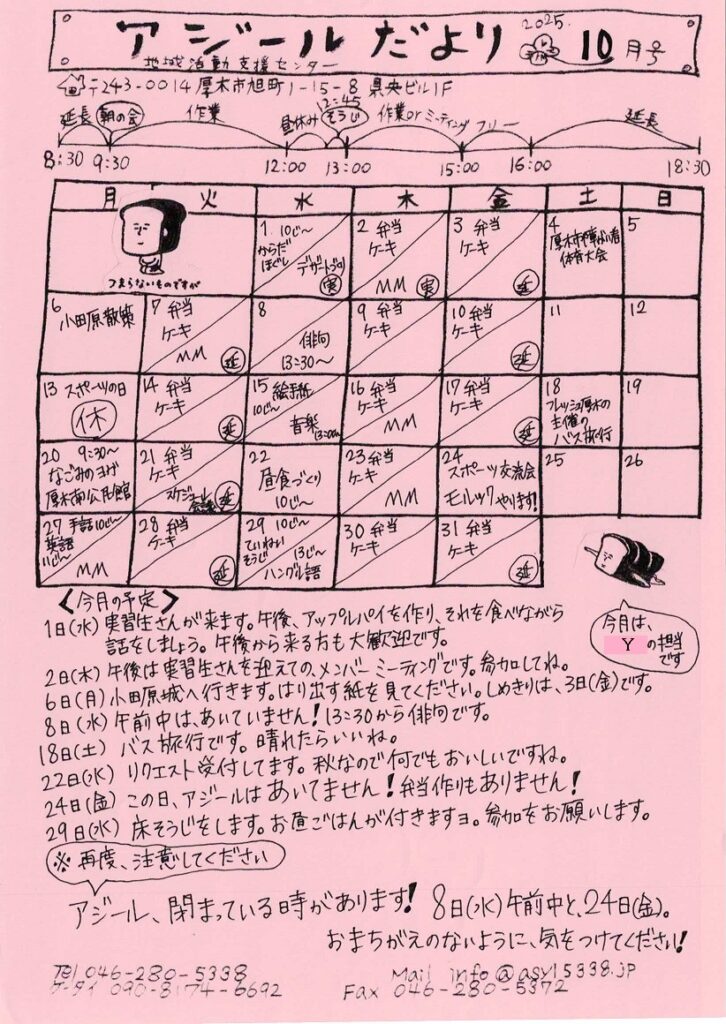 アジールだより
2025.
10月号
地域活動支援センター
〒243-0014 厚木市旭町1-15-8 県央ビル1F
延長 朝の会 作業 昼休み 12:45 そうじ 作業orミーティング フリー 延長
8:30 9:30 12:00 13:00 15:00 16:00 18:30
月 火 水 木 金 土 日
つまらないものですが
1. 10じ〜 からだほぐし デザートづくり 実
2 弁当 ケーキ MM 実
3 弁当 ケーキ 延
4 厚木市障がい者体育大会
5
6 小田原散策
7 弁当 ケーキ MM 延
8 俳句 13:30〜
9 弁当 ケーキ MM
10 弁当 ケーキ 延
11
12
13 スポーツの日 休
14 弁当 ケーキ 延
15 絵手紙 10じ〜 音楽 13:00〜
16 弁当 ケーキ MM
17 弁当 ケーキ 延
18 フレッシュ厚木の主催のバス旅行
19
20 9:30〜 なごみのヨガ 厚木南公民館
21 弁当 ケーキ スケジュール会議 延
22 昼食づくり 10じ〜
23 弁当 ケーキ MM
24 スポーツ交流会 モルックやります!
25
26
27 手話10じ〜 英語11じ〜 MM
28 弁当 ケーキ 延
29 10じ〜 ていねいそうじ 13じ〜 ハングル語
30 弁当 ケーキ
31 弁当 ケーキ 延
今月は、
Yの担当
です
〈今月の予定〉
1日(水) 実習生さんが来ます。午後、アップルパイを作り、それを食べながら
話をしましょう。午後から来る方も大歓迎です。
2日(木) 午後は実習生さんを迎えての、メンバーミーティングです。参加してね。
6日(月) 小田原城へ行きます。はり出す紙を見てください。しめきりは、3日(金)です。
8日(水) 午前中は、あいていません!13:30から俳句です。
18日(土) バス旅行です。晴れたらいいね。
22日(水) リクエスト受付してます。秋なので何でもおいしいですね。
24日(金) この日、アジールはあいてません!弁当作りもありません!
29日(水) 床そうじをします。お昼ごはんが付きますヨ。参加をお願いします。
※再度、注意してください
アジール、閉まっている時があります!8日(水)午前中と、24日(金)。
おまちがえのないように、気をつけてください!
Tel 046-280-5338 Mail info@asyl5338.jp
ケータイ 090-8174-6692 Fax 046-280-5372